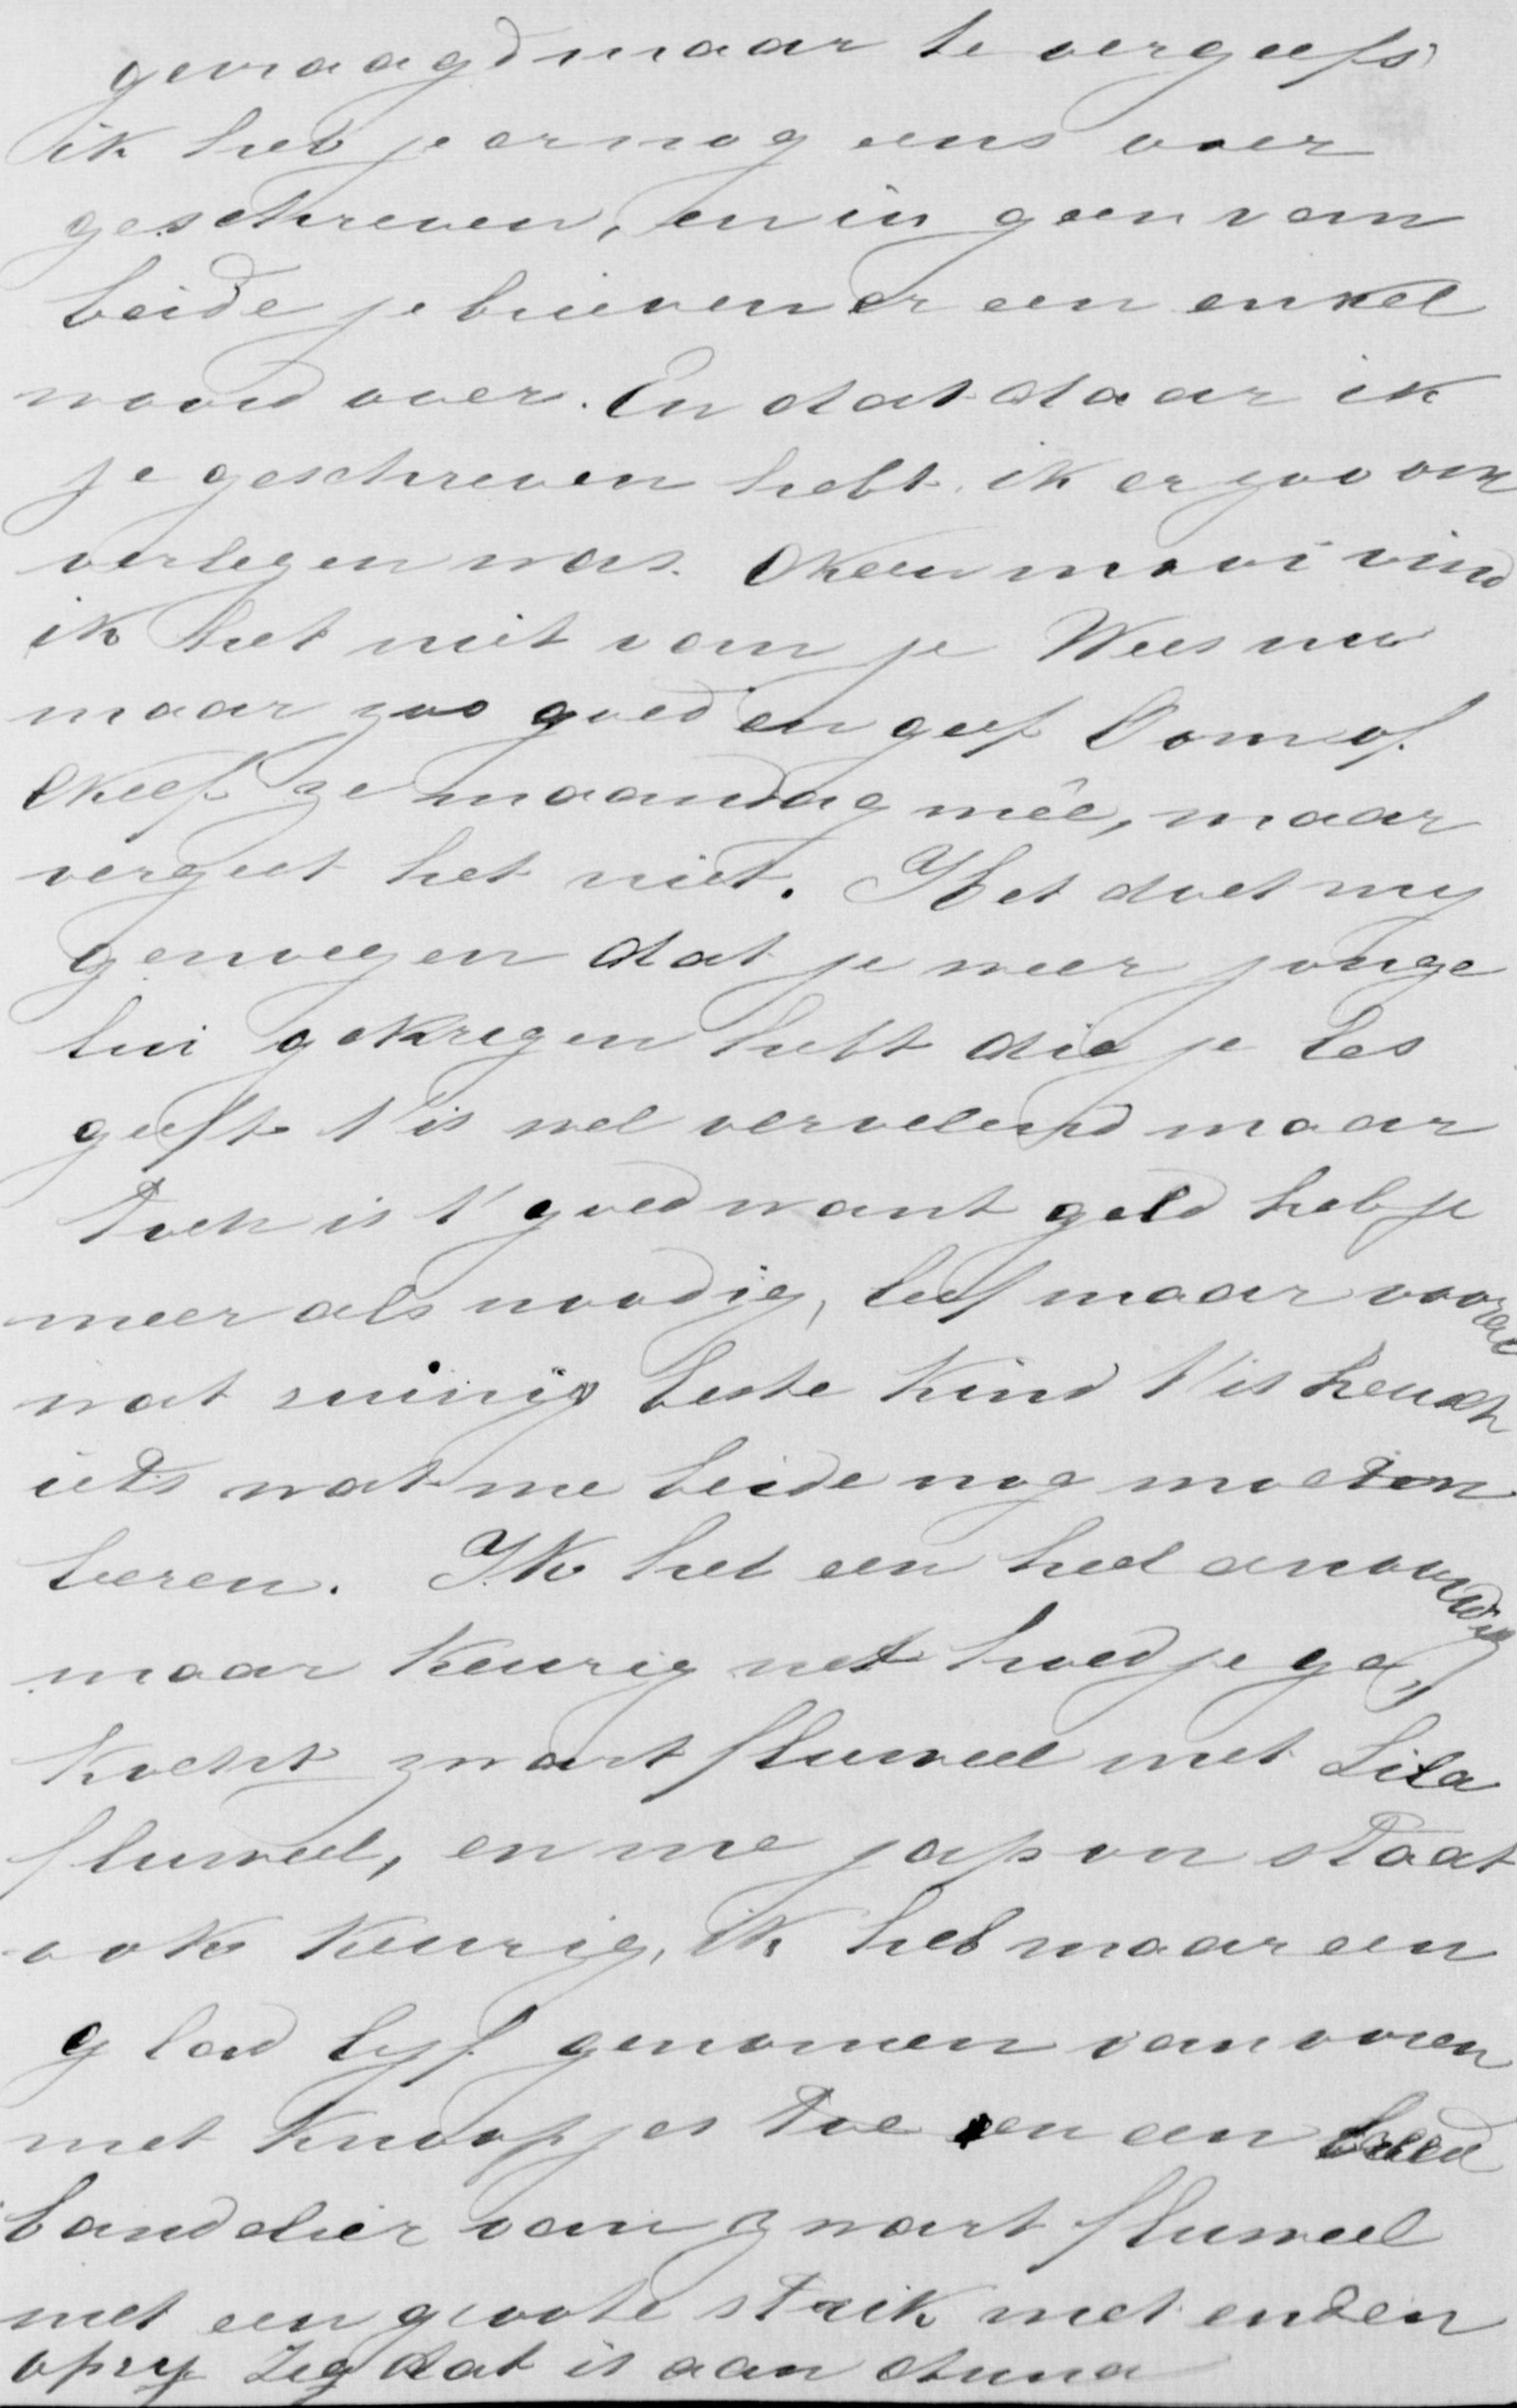 gevraagd maar te vergeefs
ik heb je er nog eens over
geschreven, en in geen van
beide je brieven er een enkel
woord over. En dat daar ik
je geschreven hebt ik er zoo om
verlegen was. Heel mooi vind
ik het niet van je Wees nu
maar zoo goed en geef Oom of
Neef ze maandag mêe, maar
vergeet het niet. Het doet my
genoegen dat je weer jonge
lui gekregen hebt die je les
geeft t'is wel vervelend maar
toch is t' goed want geld heb je
meer als noodig, leef maar vooral
wat zuinig beste Kind t'is heusch
iets wat we beide nog moeten
leeren. Ik heb een heel eenvoudig
maar keurig net hoedje ge,
kocht zwart fluweel met Lila
fluweel, en me japon staat
ook keurig, ik heb maar een
glad lyf genomen van voren
met knoopjes toe en een breed
bandelier van zwart fluweel
met een groote strik met enden
opzy zeg dat is aan Anna